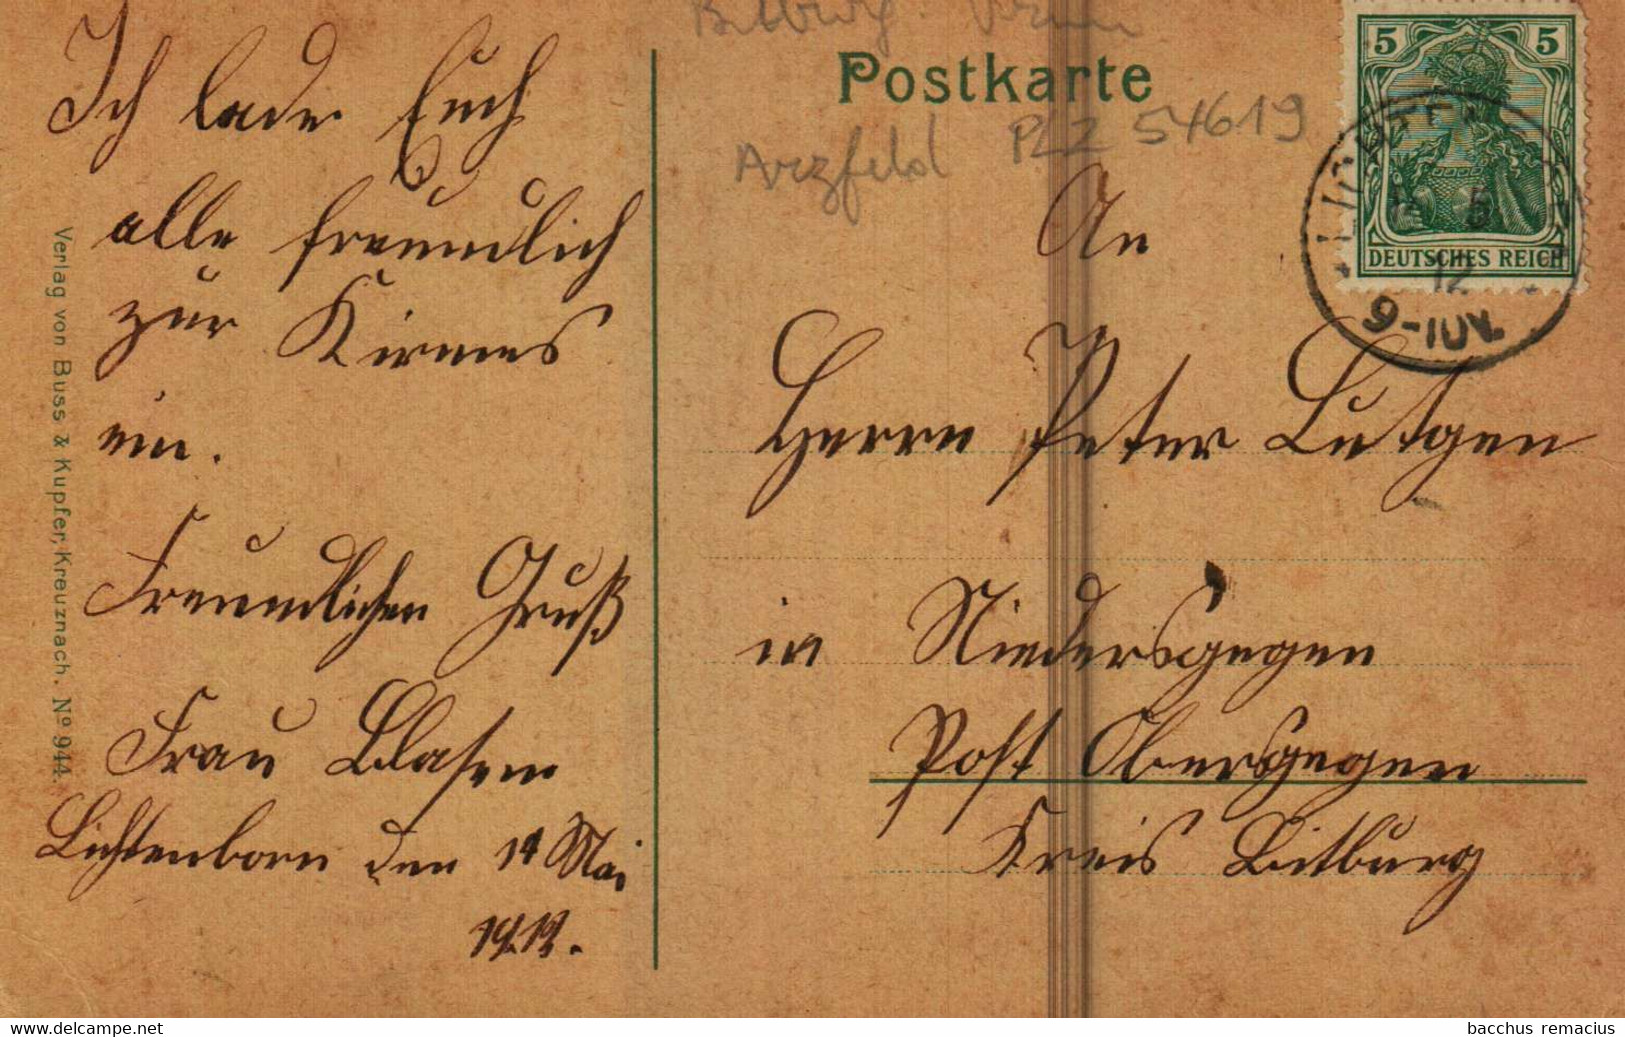 Ich lade Euch
alle freundlich
zur Kirmes
ein.
Freundlichen Gruß
Frau Blasen
Lichtenborn den 14 Mai
1912.
Verlag von Buss & Kupfer, Kreuznach. Nº 944.
Bitburg
Postkarte
Arzfeld PLZ 54619
5 5
DEUTSCHES REICH
5
12
9-10V.
An
Herrn Peter Lutgen
in Niedersgegen
Post Obersgegen
Kreis Bitburg
www.delcampe.net
bacchus remacius